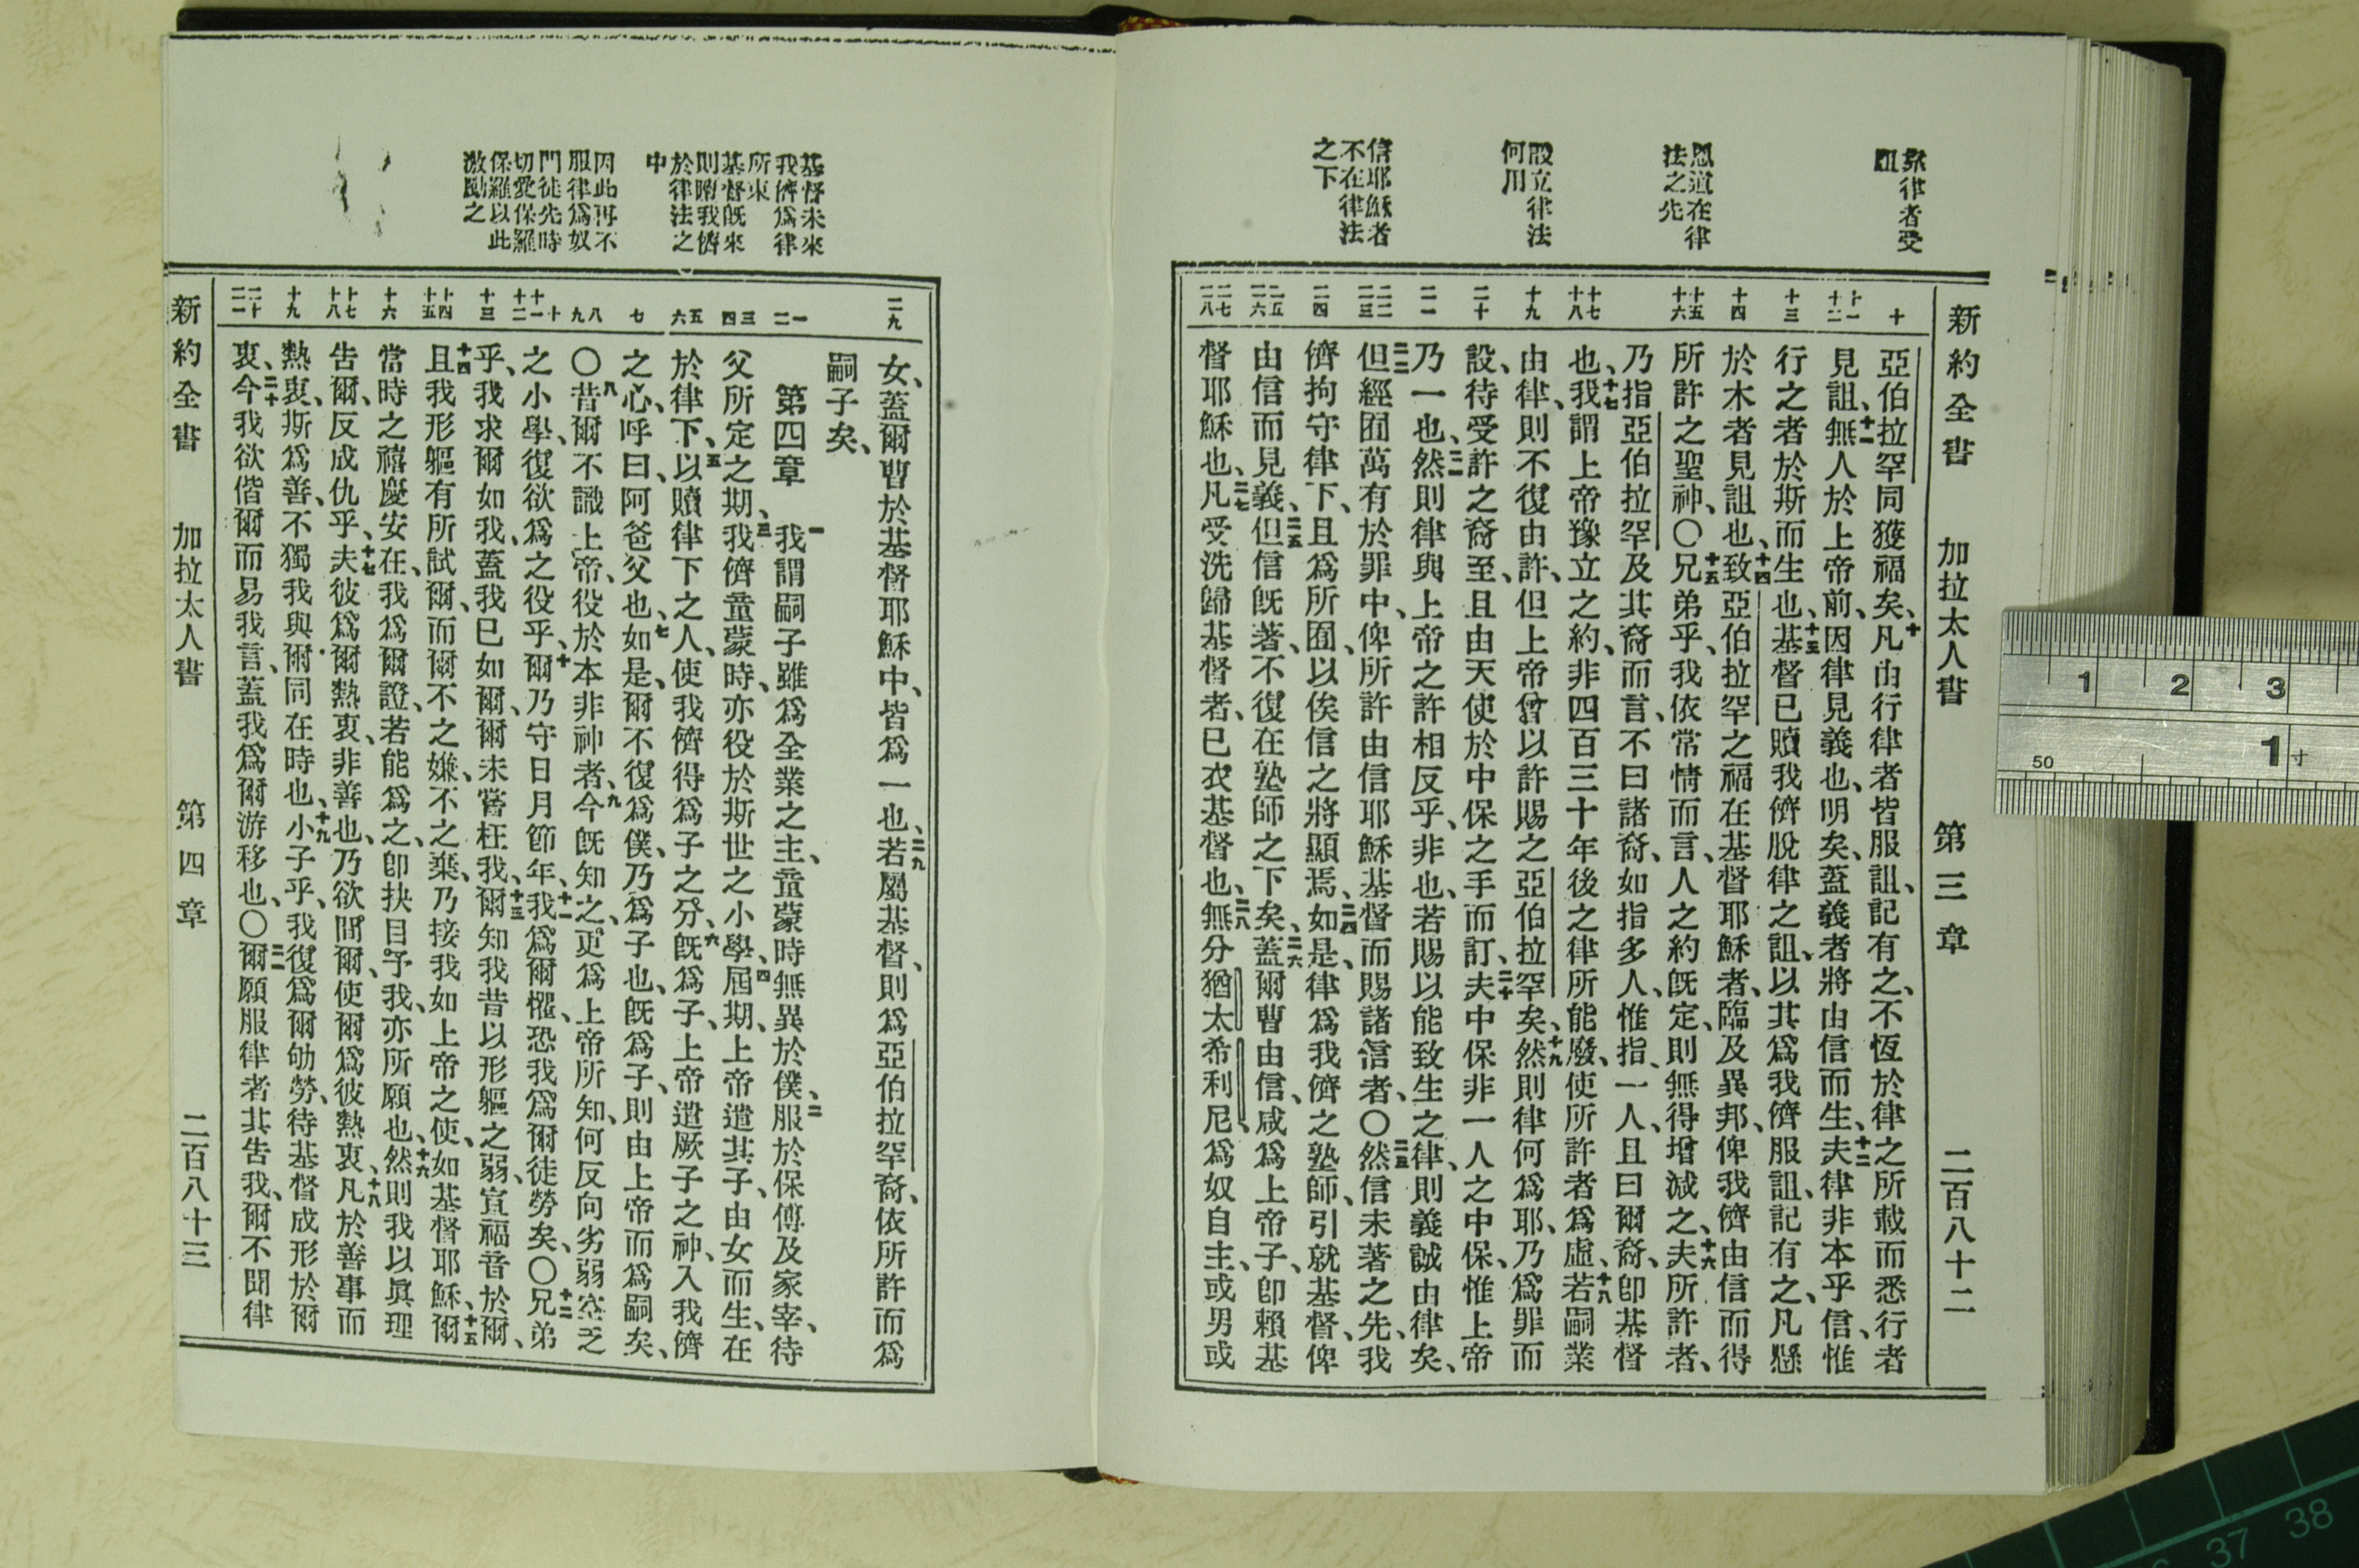 新約全書 加拉太人書 第三章 二百八十二
律者受
詛
恩道在律
法之先
設立律法
何用
信耶穌者
不在律法
之下
十
十一
十二
十三
十四
十五
十六
十七
十八
十九
二十
二一
二二
二三
二四
二五
二六
二七
二八
亞伯拉罕同獲福矣、十凡由行律者皆服詛、記有之、不恆於律之所載而悉行者
見詛、十一無人於上帝前、因律見義也、明矣、蓋義者將由信而生、十二夫律非本乎信、惟
行之者於斯而生也、十三基督已贖我儕脫律之詛、以其爲我儕服詛、記有之、凡懸
於木者見詛也、十四致亞伯拉罕之福在基督耶穌者、臨及異邦、俾我儕由信而得
所許之聖神、〇十五兄弟乎、我依常情而言、人之約既定、則無得增減之、十六夫所許者、
乃指亞伯拉罕及其裔而言、不曰諸裔、如指多人、惟指一人、且曰爾裔、卽基督
也、十七我謂上帝豫立之約、非四百三十年後之律所能廢、使所許者爲虛、十八若嗣業
由律、則不復由許、但上帝曾以許賜之亞伯拉罕矣、十九然則律何爲耶、乃爲罪而
設、待受許之裔至、且由天使於中保之手而訂、二十夫中保非一人之中保、惟上帝
乃一也、二一然則律與上帝之許相反乎、非也、若賜以能致生之律、則義誠由律矣、
二二但經囿萬有於罪中、俾所許由信耶穌基督而賜諸信者、〇二三然信未著之先、我
儕拘守律下、且爲所囿、以俟信之將顯焉、二四如是、律爲我儕之塾師、引就基督、俾
由信而見義、二五但信既著、不復在塾師之下矣、二六蓋爾曹由信、咸爲上帝子、卽賴基
督耶穌也、二七凡受洗歸基督者、已衣基督也、二八無分猶太希利尼、爲奴自主、或男或
基督未來
我儕爲律
所束
基督既來
則贖我儕
於律法之
中
因此再不
服律爲奴
門徒先時
切愛保羅
保羅以此
激勵之
二九
一
二
三
四
五
六
七
八
九
十
十一
十二
十三
十四
十五
十六
十七
十八
十九
二十
二一
女、蓋爾曹於基督耶穌中、皆爲一也、二九若屬基督、則爲亞伯拉罕裔、依所許而爲
嗣子矣、
第四章 一我謂嗣子雖爲全業之主、童蒙時無異於僕、二服於保傅及家宰、待
父所定之期、三我儕童蒙時、亦役於斯世之小學、四屆期、上帝遣其子、由女而生、在
於律下、五以贖律下之人、使我儕得爲子之分、六既爲子、上帝遣厥子之神、入我儕
之心、呼曰、阿爸父也、七如是、爾不復爲僕、乃爲子也、既爲子、則由上帝而爲嗣矣、
〇八昔爾不識上帝、役於本非神者、九今既知之、更爲上帝所知、何反向劣弱空乏
之小學、復欲爲之役乎、十爾乃守日月節年、十一我爲爾懼、恐我爲爾徒勞矣、〇十二兄弟
乎、我求爾如我、蓋我已如爾、爾未嘗枉我、十三爾知我昔以形軀之弱、宣福音於爾、
十四且我形軀有所試爾、而爾不之嫌、不之棄、乃接我如上帝之使、如基督耶穌、十五爾
當時之禧慶安在、我爲爾證、若能爲之、卽抉目予我、亦所願也、十六然則我以眞理
告爾、反成仇乎、十七夫彼爲爾熱衷、非善也、乃欲間爾、使爾爲彼熱衷、十八凡於善事而
熱衷、斯爲善、不獨我與爾同在時也、十九小子乎、我復爲爾劬勞、待基督成形於爾
衷、二十今我欲偕爾而易我言、蓋我爲爾游移也、〇二一爾願服律者、其告我、爾不聞律
新約全書 加拉太人書 第四章 二百八十三
1 2 3
50 1 寸
37 38